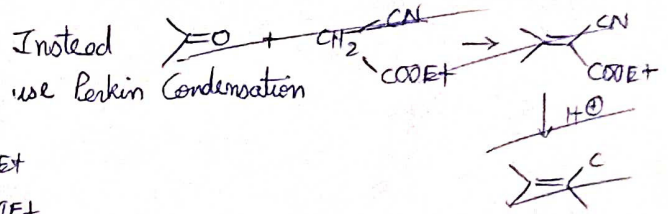 Instead =O + CH2 CN COOEt → CN COOEt
use Perkin Condensation
H⊕
Et
C